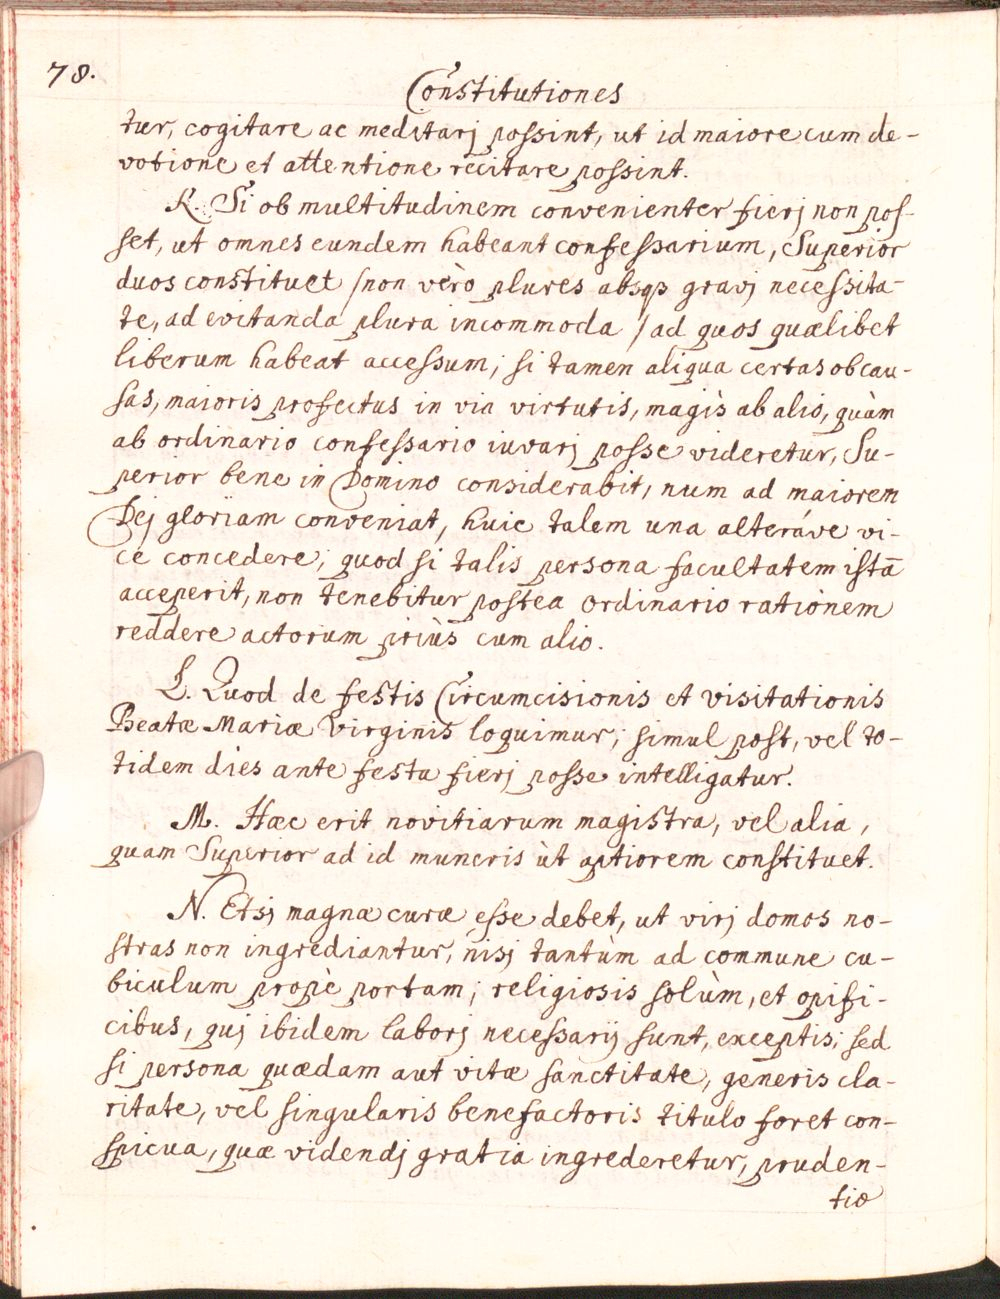 78.
Constitutiones
tur, cogitare ac meditarj possint, ut id maiore cum de-
votione et attentione recitare possint.
K. Si ob multitudinem convenienter fierj non pos-
set, ut omnes eundem habeant confessarium, Superior
duos constituet /non verò plures absqꝫ gravj necessita-
te, ad evitanda plura incommoda / ad quos quælibet
liberum habeat accessum; si tamen aliqua certas ob cau-
sas, maioris profectus in via virtutis, magìs ab alio, quàm
ab ordinario confessario iuvarj posse videretur, Su-
perior bene in Domino considerabit, num ad maiorem
Dej gloriam conveniat, huic talem una alteráve vi-
ce concedere; quod si talis persona facultatem istā
acceperit, non tenebitur postea ordinario rationem
reddere actorum priùs cum alio.
L. Quod de festis Circumcisionis et visitationis
Beatæ Mariæ Virginis loquimur; simul post, vel to-
tidem dies ante festa fierj posse intelligatur.
M. Hæc erit novitiarum magistra, vel alia,
quam Superior ad id muneris ùt aptiorem constituet.
N. Etsj magnæ curæ esse debet, ut virj domos no-
stras non ingrediantur, nisj tantùm ad commune cu-
biculum propè portam; religiosis solùm, et opifi-
cibus, quj ibidem laborj necessarij sunt, exceptis; sed
si persona quædam aut vitæ sanctitate, generis cla-
ritate, vel singularis benefactoris titulo foret con-
spicua, quæ videndj gratia ingrederetur, pruden-
tiæ